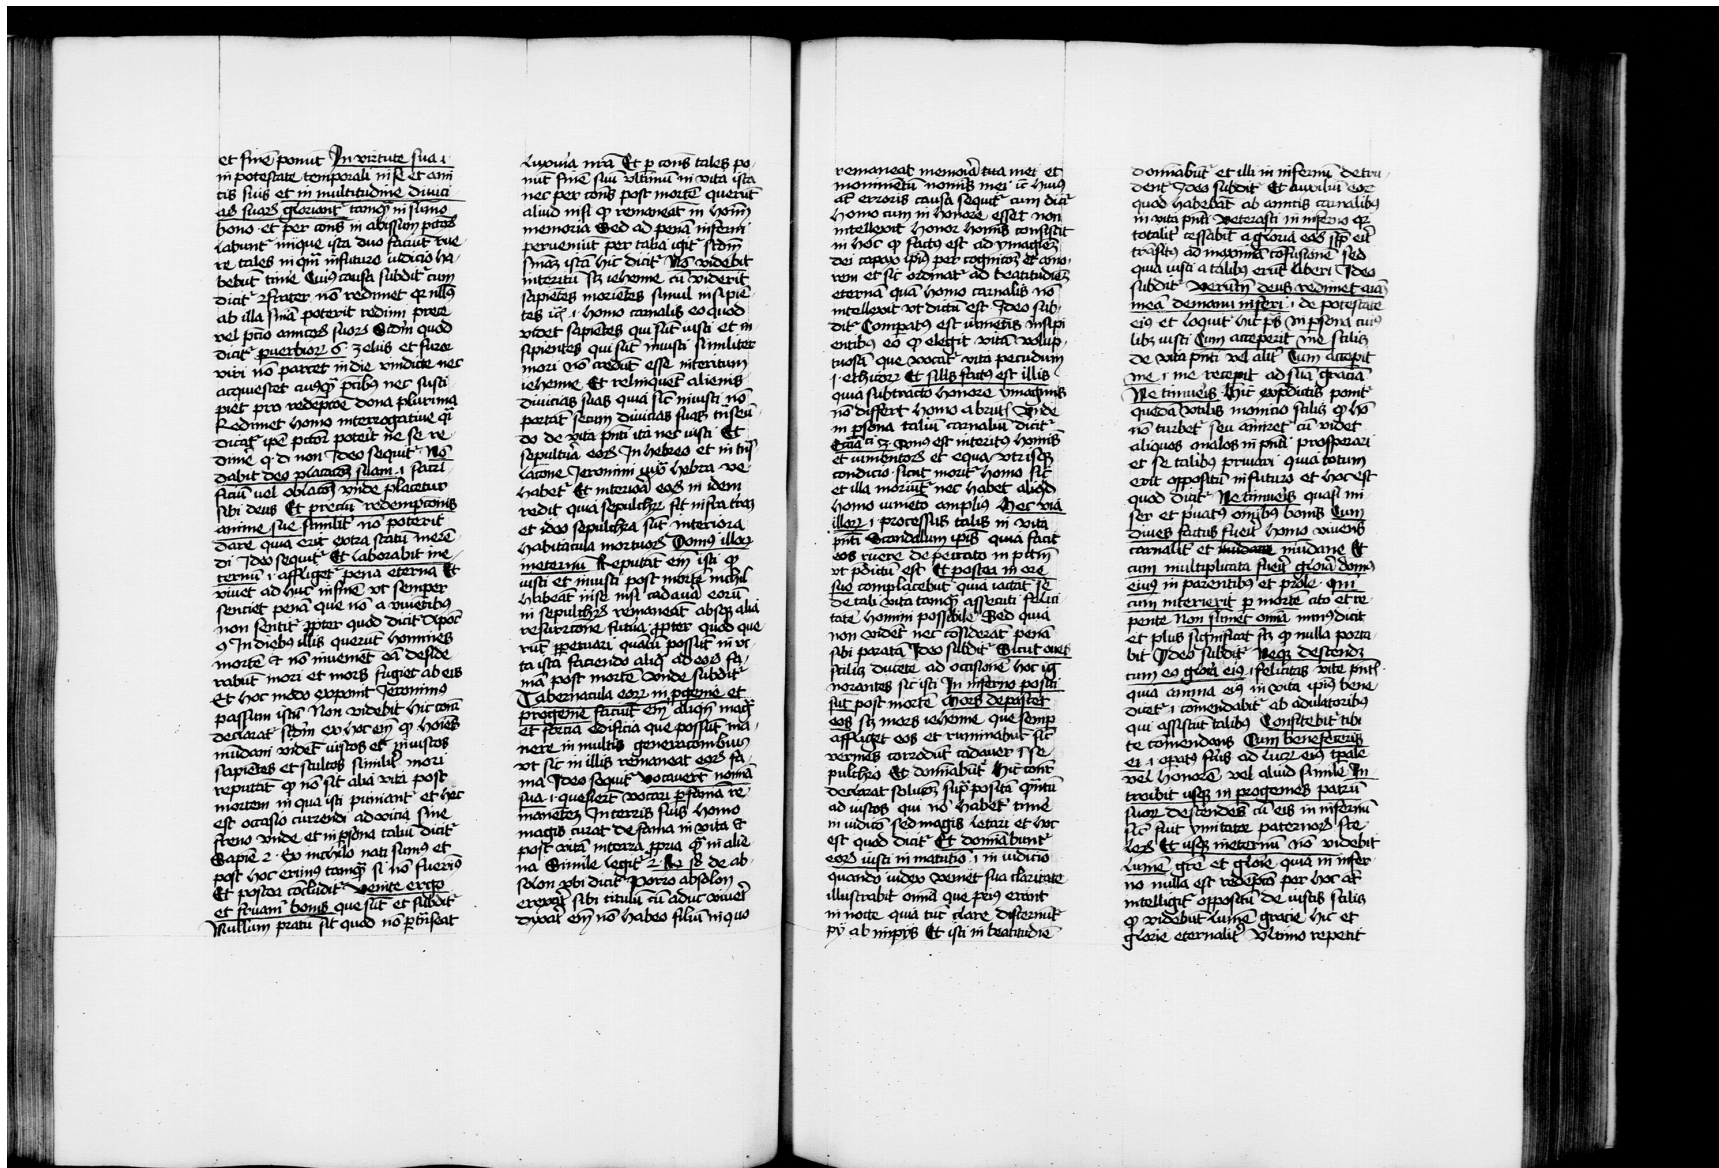 et finē ponūt In virtute sua .i.
in potestate temporali in se et ami
cis suis et in multitudine diuici
aꝝ suaꝝ gloriant᷑ tamqͣ in sūmo
bono et per cons in abissum pctōꝝ
labunt᷑ unique ista duo faciūt rue
re tales in qm̄ in futuro iudicio ha
bebūt time Cuius causa subdit᷑ cum
dicit᷑ frater nō redimet qꝛ nllꝰ
ab illa sniā poterit redimi prece
vel p̄cio amicoꝝ suoꝝ Scdm̄ quod
dicit᷑ puerbioꝝ 6 zelus et furor
viri nō parcet in die vindicte nec
acquiescet cuiusqͣ p̄cibꝰ nec susci
piet pro redēpcōe dona plurima
Redimet homo interrogatiue qͣi
dicat᷑ ipē pctōr poterit ne se re
dime q. d. non Ideo sequit᷑ Nō
dabit deo placacōꝫ suam .i. sacri
ficiū vel oblacōꝫ vnde placetur
sibi deus Et preciū redempcionis
anime sue similit᷑ nō poterit
dare quia erit extra statū merē
di Ideo sequit᷑ Et laborabit ine
ternū .i. affliget᷑ pena eterna Et
viuet ad huc infinē vt semper
senciet penā que nō a viuētibꝰ
non sentit᷑ ꝓpter quod dicit᷑ Apoc
9 In diebꝰ illis querūt homines
mortē et nō inueniēt eā deside
rabūt mori et mors fugiet ab eis
Et hoc modo exponit Jeronimus
passum istū Non videbit hic cont̄
declarat᷑ scdm̄ ex hoc em̄ qͥ hoīes
mūdani vidēt iustos et iniustos
sapiētes et stultos similit᷑ mori
reputāt ꝙ nō sit alia vita post
mortem in qua isti puniant᷑ et hec
est occasio currendi ad vicia sine
freno vnde et in p̄sona taliū dicit᷑
Sapiē 2. Ex nichilo nati sumꝰ et
post hoc erimꝰ tamqͣ si nō fuerimꝰ
Et postea cōcludit᷑ venite ergo
et fruam᷑ bonis que sūt et subdit᷑
Nullum pratū sit quod nō ptrāseat
luxuria nrā Et p cons tales po
nūt finē suū vltimū in vita ista
nec per cons post mortē querūt
aliud nisi ꝙ remaneat in hoīm
memoria Sed ad penā inferni
perueniūt per talia igit᷑ scdm̄
snīaꝫ istā hic dicit᷑ Nō videbit
interitū scꝫ iehenne cū viderit
sapiētes moriētes simul insipiē
tes ꝛc̄ .i. homo carnalis eo quod
videt sapiētes qui sūt iusti et in
sipientes qui sūt iniusti similiter
mori nō credūt esse interitum
iehenne Et relinquēt alienis
diuicias suas quia sic iniusti nō
portāt secum diuicias suas trāseū
do de vita pn̄ti ita nec iusti Et
sepultura eoꝝ In hebreo et in trās
lacōne Jeronimi iuxᵃ hebra. ve
habet᷑ Et interiora eoꝝ in idem
redit quia sepulchꝝ fit infra trām
et ideo sepulchra sūt interiora
habitacula mortuoꝝ Domꝰ illoꝝ
ineternū Reputāt em̄ isti ꝙ
iusti et iniusti post mortē nichil
habeāt in se nisi cadauera eorū
in sepulchris remaneāt absqꝫ alia
resurrcōne futura ꝓpter quod que
rūt ꝑpetuari quātū possūt in vi
ta ista faciendo aliqͣ ad eoꝝ fa
mā post mortē Unde subdit᷑
Tabernacula eoꝝ in ꝓgenie et
progenie faciūt em̄ aliqͣ magͣ
et forcia edificia que possūt ma
nere in multis generacōnibus
vt sic in illis remaneat eoꝝ fa
ma Ideo sequit᷑ vocauerūt nomīa
sua .i. quesierūt vocari p famā re
manētem In terris suis homo
magis curat de fama in vita et
post vitā in terra ꝓpria qͣ in alie
na Simile legit᷑ 2. R. 18 de ab
solon vbi dicit᷑ Porro absolon
erexerat sibi titulū cū adhuc viueret
dixerat em̄ nō habeo filiū in quo
remaneat memoria tua mei et
monimētū nominis mei ꝛc̄ huiꝰ
aūt erroris causa sequit᷑ cum dicit᷑
homo cum in honore esset non
intellexit honor hominis consistit
in hoc ꝙ factꝰ est ad ymaginē
dei capax ipsiꝰ per cognicōeꝫ et amo
rem et sic ordinat᷑ ad beatitudinēꝫ
eternā quā homo carnalis nō
intellexit vt dictū est Ideo sub
dit᷑ Comparatꝰ est iumētis insipi
entibus eo ꝙ elegit vitā volup
tuosā que vocat᷑ vita pecudum
.i. ethicoꝝ Et similis factꝰ est illis
quia subtracto honore ymaginis
nō differt homo a brutis Unde
in p̄sona taliū carnaliū dicit᷑
Eccᵃ iij ꝫ Unꝰ est interitꝰ hominis
et iumentoꝝ et equa vtriusqꝫ
condicio sicut morit᷑ homo sic
et illa moriūt᷑ nec habet aliqͥd
homo iumēto amplius Hec via
illoꝝ .i. processus talis in vita
pn̄ti Scandalum ipsis quia facit
eos ruere de peccato in pctm̄
vt p̄dictū est Et postea in ore
suo complacebūt quia iactāt se
de tali vita tamqͣ assecuti felici
tatē homini possibile Sed quia
non vidēt nec cōsiderāt penā
sibi paratā Ideo subdit᷑ Sicut oues
scilicꝫ ducete ad occisionē hoc ig
norantes sic isti In inferno positi
sūt post mortē Mors depascet᷑
eos scꝫ mors iehenne que semꝑ
affliget eos et ruminabūt᷑ sic
vermes corrodūt cadauer .i. se
pulchro Et domīabūt᷑ Hic cont̄
declarat᷑ solucōꝫ supᵃ posita qͣntū
ad iustos qui nō habēt time
in iudicō sed magis letari et hoc
est quod dicit᷑ Et domīabunt᷑
eoꝝ iusti in matutino .i. in iudicio
quando iudex veniet sua claritate
illustrabit omīa que prius erāt
in nocte quia tūc clare discernūt᷑
pij ab impijs Et isti in beatitudīe
domīabūt᷑ et illi in infernū detru
dent᷑ Ideo subdit᷑ Et auxiliū eoꝝ
quod habebāt ab amicis carnalibꝰ
in vita pn̄ti veterascet in inferno qꝛ
totalit᷑ cessabit a gloria eoꝝ scꝫ erit
trāsitꝰ ad maximā cōfusionē sed
quia iusti a talibꝰ erūt liberi Ideo
subdit᷑ Verūtm̄ deus redimet aīaꝫ
meā demanu inferi .i. de potestate
eiꝰ et loquit᷑ hic ps in p̄sona cuiꝰ
libꝫ iusti Cum acceperit me scilicꝫ
de vita pn̄ti vel alit᷑ Cum accepit
me .i. me recepit ad suā graciā
Ne timueris Hic expeditis ponit᷑
quedā vtilis monicio scilicꝫ ꝙ hō
nō turbet᷑ seu admiret᷑ cū videt
aliquos malos in pn̄ti prosperari
et se talibꝰ priuari quia totum
erit oppositū in futuro et hoc est
quod dicit᷑ Ne timueris quasi mi
ser et priuatꝰ omībus bonis Cum
diues factus fuerit homo viuens
carnalit᷑ et mūdane Et
cum multiplicata fuerit gloria domꝰ
eiꝰ in parentibꝰ et prole Qm̄
cum interierit p mortē cito et re
pente Non sumet omīa minꝰ dicit
et plus significat scꝫ ꝙ nulla porta
bit Ideo subdit᷑ Neqꝫ descendꝫ
cum eo gloria eiꝰ .i. felicitas vite pn̄tis
quia anima eiꝰ in vita ipsiꝰ bene
dicet᷑ .i. comendabit᷑ ab adulatoribus
qui assistūt talibꝰ Confitebit᷑ tibi
te cōmendans Cum benefeceris
ei .i. operatꝰ fueris ad lucꝝ eiꝰ tpale
vel honorē vel aliud simile In
troibit usqꝫ in progenies patrū
suoꝝ descendens cū eis in infernū
sicut fuit ymitator paternoꝝ sce
leꝝ Et usqꝫ ineternū nō videbit
lumē grē et glorie quia in infer
no nulla est redēpcō per hoc aūt
intelligit᷑ oppositū de iustis scilicꝫ
ꝙ videbūt lumē gracie hic et
glorie eternalit᷑ Ultimo repetit